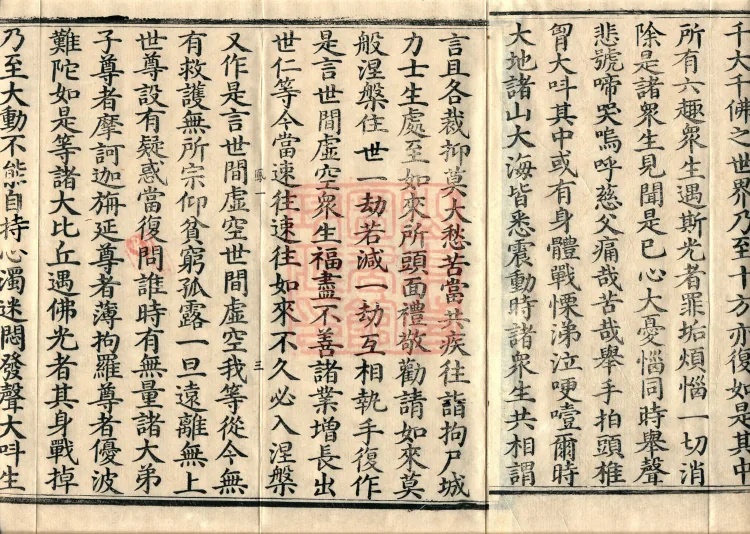 千大千佛之世界乃至十方亦復如是其中
所有六趣衆生遇斯光者罪垢煩惱一切消
除是諸衆生見聞是已心大憂惱同時舉聲
悲號啼哭嗚呼慈父痛哉苦哉舉手拍頭椎
胷大呌其中或有身體戰慄涕泣哽噎爾時
大地諸山大海皆悉震動時諸衆生共相謂
言且各裁抑莫大愁苦當共疾往詣拘尸城
力士生處至如來所頭面禮敬勸請如來莫
般涅槃住世一劫若減一劫互相執手復作
是言世間虛空衆生福盡不善諸業增長出
世仁等今當速往速往如來不久必入涅槃
勝一
三
又作是言世間虛空世間虛空我等從今無
有救護無所宗仰貧窮孤露一旦遠離無上
世尊設有疑惑當復問誰時有無量諸大弟
子尊者摩訶迦旃延尊者薄拘羅尊者優波
難陀如是等諸大比丘遇佛光者其身戰掉
乃至大動不能自持心濁迷悶發聲大呌生